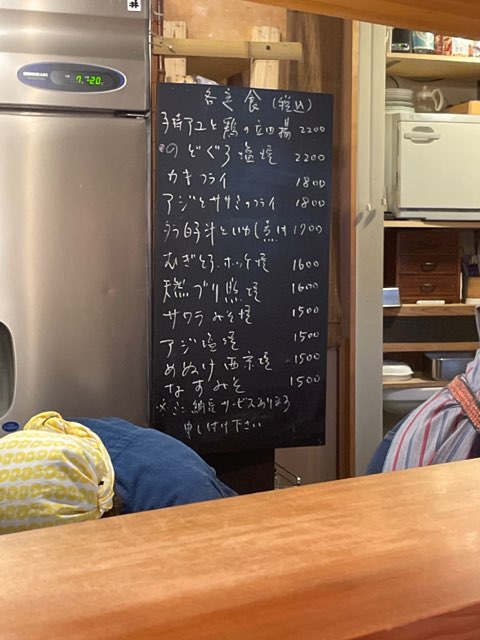 各定食(税込)
子持アユと鶏の立田揚 2200
のどぐろ塩焼 2200
カキフライ 1800
アジとササミのフライ 1800
タラ白子汁といわし煮付 1700
むぎとろ、ホッケ焼 1600
天然ブリ照焼 1600
サワラみそ焼 1500
アジ塩焼 1500
めぬけ西京焼 1500
なすみそ 1500
納豆サービスあります
申し付け下さい